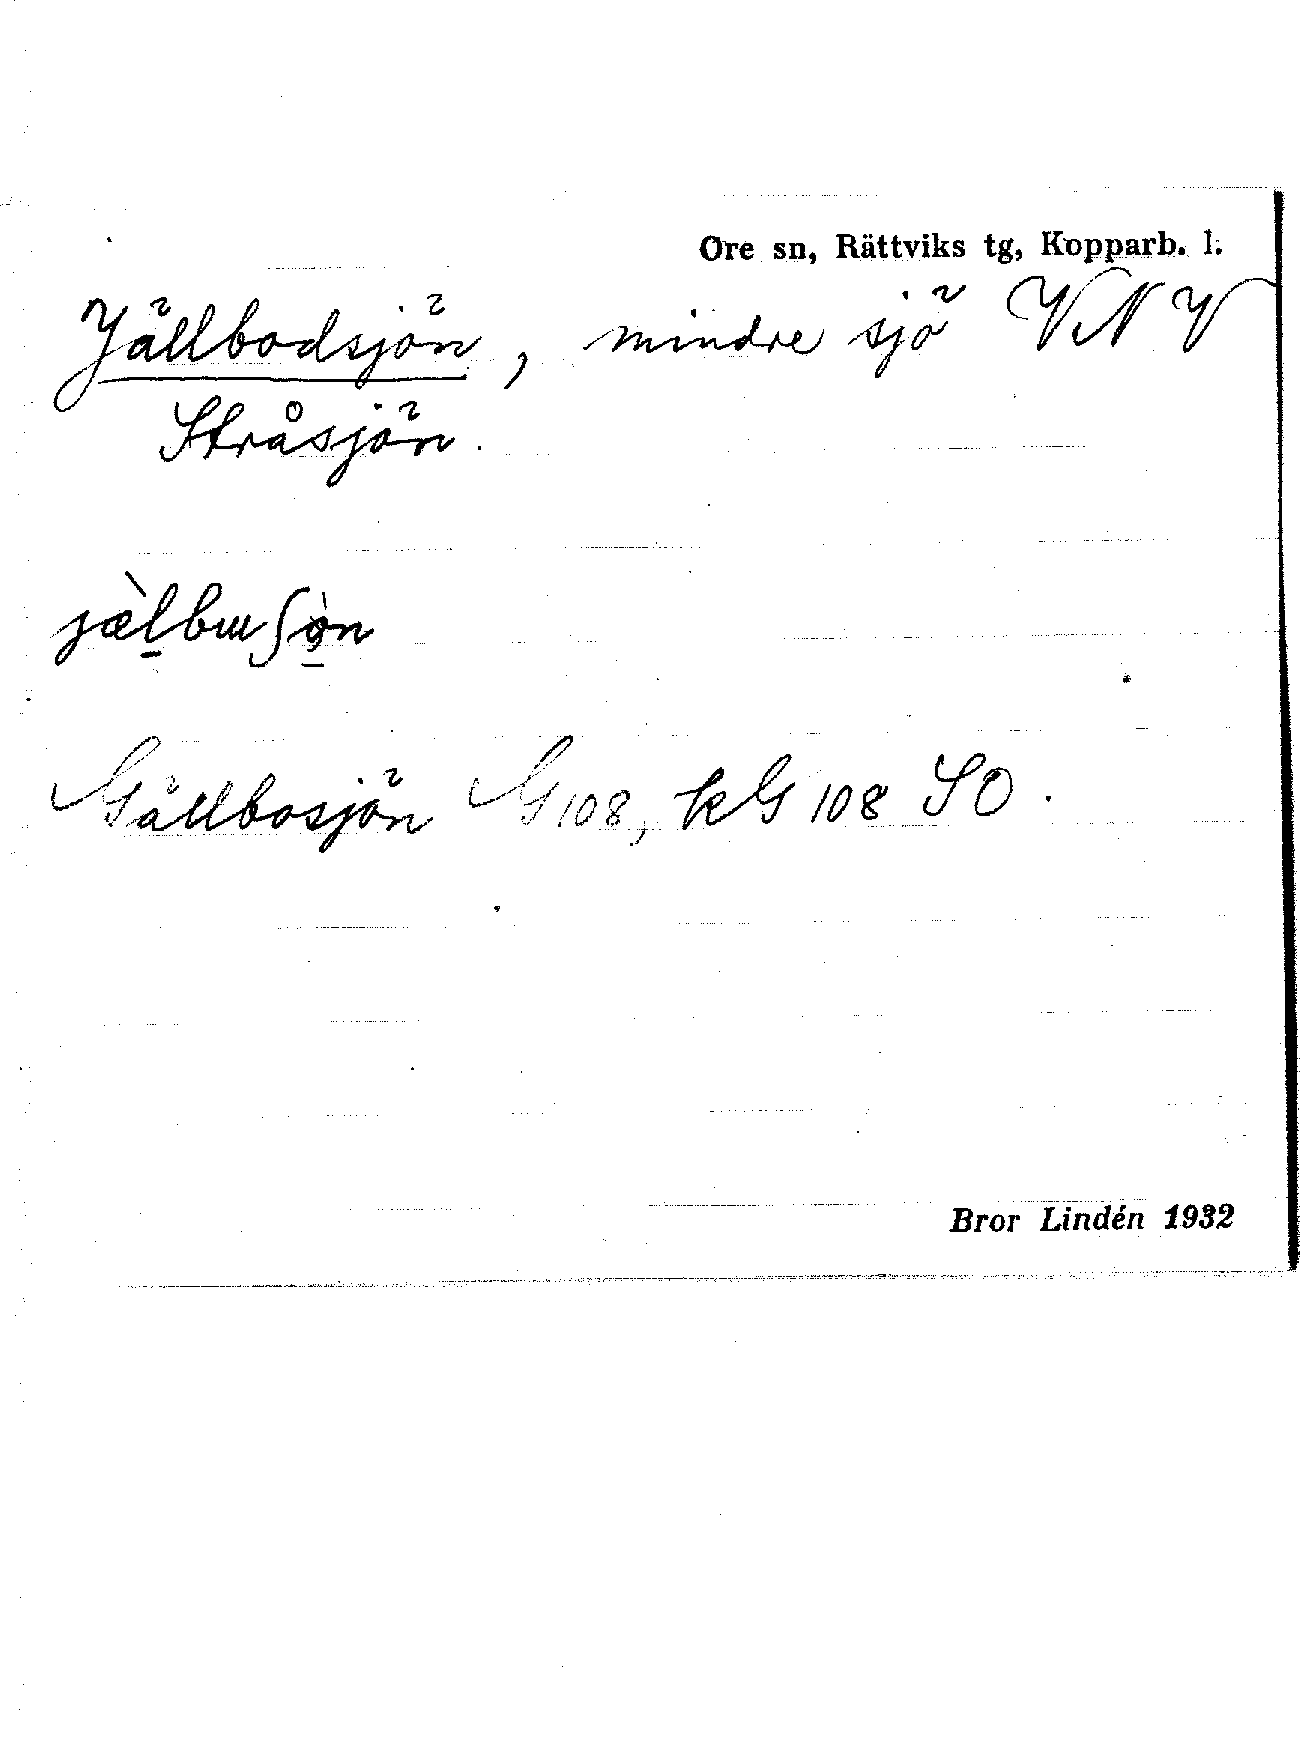 Ore sn, Rättviks tg, Kopparb. l.
Jällbodsjön, mindre sjö VNV
Stråsjön.
jæ̀lbɯʃòn
Gällbosjön G 108, kG 108 SO.
Bror Lindén 1932